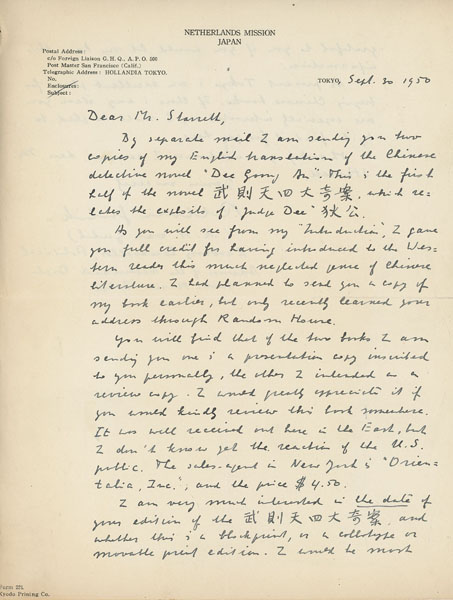 NETHERLANDS MISSION
JAPAN
Postal Address :
c/o Foreign Liaison G. H. Q., A. P. O. 500
Post Master San Francisco (Calif.)
Telegraphic Address : HOLLANDIA TOKYO.
No.
Enclosures:
Subject :
TOKYO, Sept. 30 1950
Dear Mr. Starrett,
By separate mail I am sending you two
copies of my English translation of the Chinese
detective novel "Dee Goong An". This is the first
half of the novel 武則天四大奇案, which re-
lates the exploits of "Judge Dee" 狄公.
As you will see from my "Introduction", I gave
you full credit for having introduced to the Wes-
tern reader this much neglected genre of Chinese
literature. I had planned to send you a copy of
my book earlier, but only recently learned your
address through Random House.
You will find that of the two books I am
sending you one is a presentation copy inscribed
to you personally, the other I intended as a
review copy. I would greatly appreciate it if
you would kindly review this book somewhere.
It was well received out here in the East, but
I don't know yet the reaction of the U.S.
public. The sales-agent in New York is "Orien-
talia, Inc.", and the price $ 4.50.
I am very much interested in the date of
your edition of the 武則天四大奇案, and
whether this is a blockprint, or a collotype or
movable print edition. I would be most
Form 271.
Kyodo Printing Co.